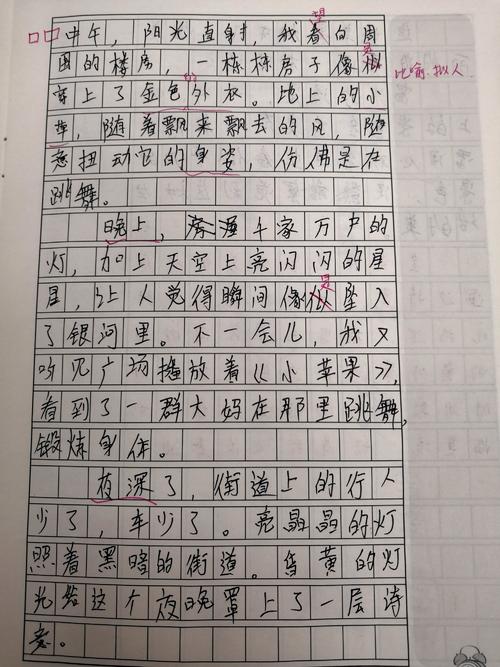 望
中午，阳光直射，我看向周
是
围的楼房，一栋栋房子像似
比喻.拟人
的
穿上了金色外衣。地上的小
草，随着飘来飘去的风，随
意扭动它的身姿，仿佛是在
跳舞。
晚上，千家万户的
灯，加上天空上亮闪闪的星
是
星，让人觉得瞬间像似坠入
了银河里。不一会儿，我又
听见广场播放着《小苹果》，
看到了一群大妈在那里跳舞，
锻炼身体。
夜深了，街道上的行人
少了，车少了。亮晶晶的灯
照着黑暗的街道。昏黄的灯
光给这个夜晚罩上了一层诗
意。